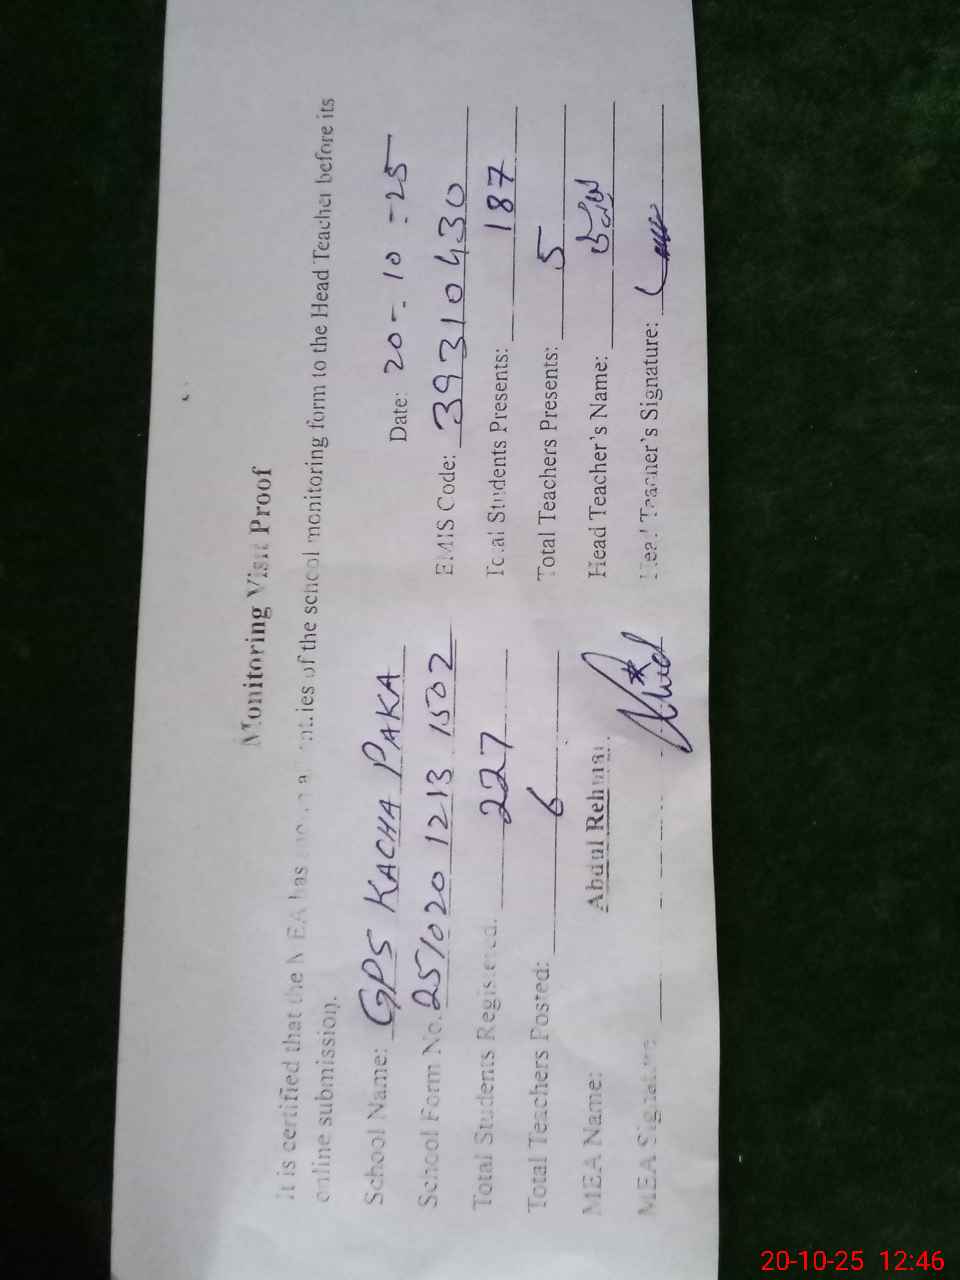 Monitoring Visit Proof
It is certified that the MEA has shown all entries of the school monitoring form to the Head Teacher before its
online submission.
Date: 20-10-25
School Name: GPS KACHA PAKA
School Form No. 251020 1213 1502 EMIS Code: 39310430
Total Students Registered. 227 Total Students Presents: 187
Total Teachers Posted: 6 Total Teachers Presents: 5
MEA Name: Abdul Rehman Head Teacher's Name:
MEA Signature Head Teacher's Signature:
20-10-25 12:46